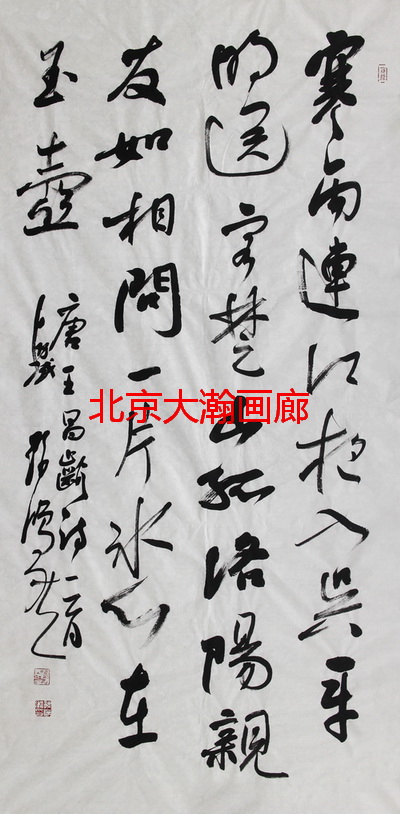 寒雨連江夜入吳平
明送客楚山孤洛陽親
友如相問一片冰心在
玉壺
唐王昌齡詩一首
北京大瀚画廊